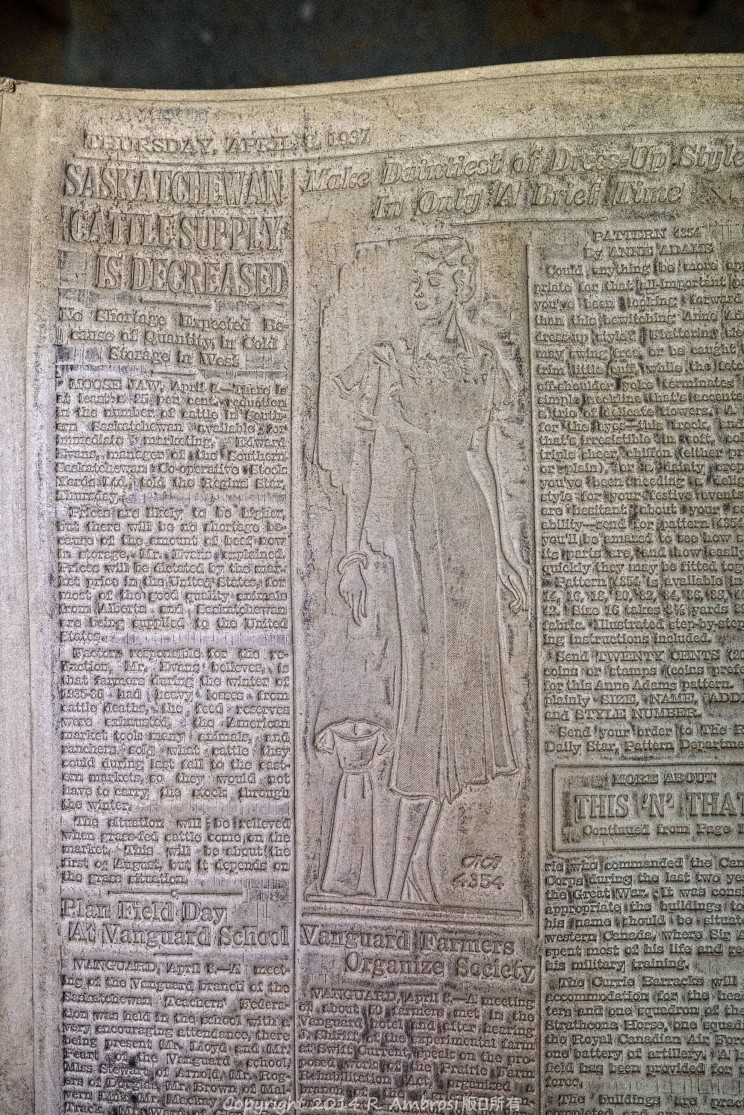 THURSDAY, APRIL 8, 1937
SASKATCHEWAN
CATTLE SUPPLY
IS DECREASED
No Shortage Expected Be-
cause of Quantity in Cold
Storage in West
MOOSE JAW, April 8.—There is
at least a 25 per cent. reduction
in the number of cattle in South-
ern Saskatchewan available for
immediate marketing, Edward
Evans, manager of the Southern
Saskatchewan Co-operative Stock
Yards Ltd., told the Regina Star,
Thursday.
Prices are likely to be higher,
but there will be no shortage be-
cause of the amount of beef now
in storage, Mr. Evans explained.
Prices will be dictated by the mar-
ket price in the United States, for
most of the good quality animals
from Alberta and Saskatchewan
are being supplied to the United
States.
Factors responsible for the re-
duction, Mr. Evans believes, is
that farmers during the winter of
1935-36 had heavy losses from
cattle deaths, the feed reserves
were exhausted, the American
market took many animals, and
ranchers sold what cattle they
could during last fall to the east-
ern markets, so they would not
have to carry the stock through
the winter.
The situation will be relieved
when grass-fed cattle come on the
market. This will be about the
first of August, but it depends on
the grass situation.
Plan Field Day
At Vanguard School
VANGUARD, April 8.—A meet-
ing of the Vanguard branch of the
Saskatchewan Teachers' Federa-
tion was held in the school with a
very encouraging attendance, there
being present Mr. Lloyd and Mr.
Peart of the Vanguard school,
Miss Stewart of Arnold, Mr. Rog-
ers of Mr. Brown of Mal-
vern
Make Daintiest of Dress-Up Style
In Only A Brief Time
4354
Vanguard Farmers
Organize Society
VANGUARD, April 8.—A meeting
of about 50 farmers met in the
Vanguard hotel and after hearing
J. Shirriff of the experimental farm
at Swift Current, speak on the pro-
posed work of the Prairie Farm
Rehabilitation Act, organized a
PATTERN 4354
by ANNE ADAMS
Could anything be more app
priate for that all-important
you've been looking forward
than this bewitching Anne Ad
dress-up style? Fluttering sle
may swing free, or be caught
trim little cuff, while the fete
off-shoulder yoke terminates
simple neckline that's accente
a trio of delicate flowers. A
for the eyes—this frock, and
that's irresistible in soft, col
triple sheer, chiffon (either pr
or plain), for a dainty crep
you've been needing a delig
style for your festive events
are hesitant about your se
ability—send for pattern 4354
you'll be amazed to see how
its parts are, and how easily
quickly they may be fitted tog
Pattern 4354 is available in
14, 16, 18, 20, 32, 34, 36, 38, 40
42. Size 16 takes 3⅝ yards 39
fabric. Illustrated step-by-step
ing instructions included.
Send TWENTY CENTS (20
coins or stamps (coins prefe
for this Anne Adams pattern.
plainly SIZE, NAME, ADD
and STYLE NUMBER.
Send your order to The R
Daily Star, Pattern Departme
MORE ABOUT
THIS 'N' THAT
Continued from Page 1
rie who commanded the Can
Corps during the last two ye
the Great War. It was cons
appropriate the buildings to
his name should be situate
western Canada, where Sir A
spent most of his life and re
his military training.
The Currie Barracks will
accommodation for the head
ters and one squadron of the
Strathcona Horse, one squad
the Royal Canadian Air Forc
one battery of artillery. A l
field has been provided for
force.
The buildings are practic
Copyright 2014 R. Ambrosi 版权所有